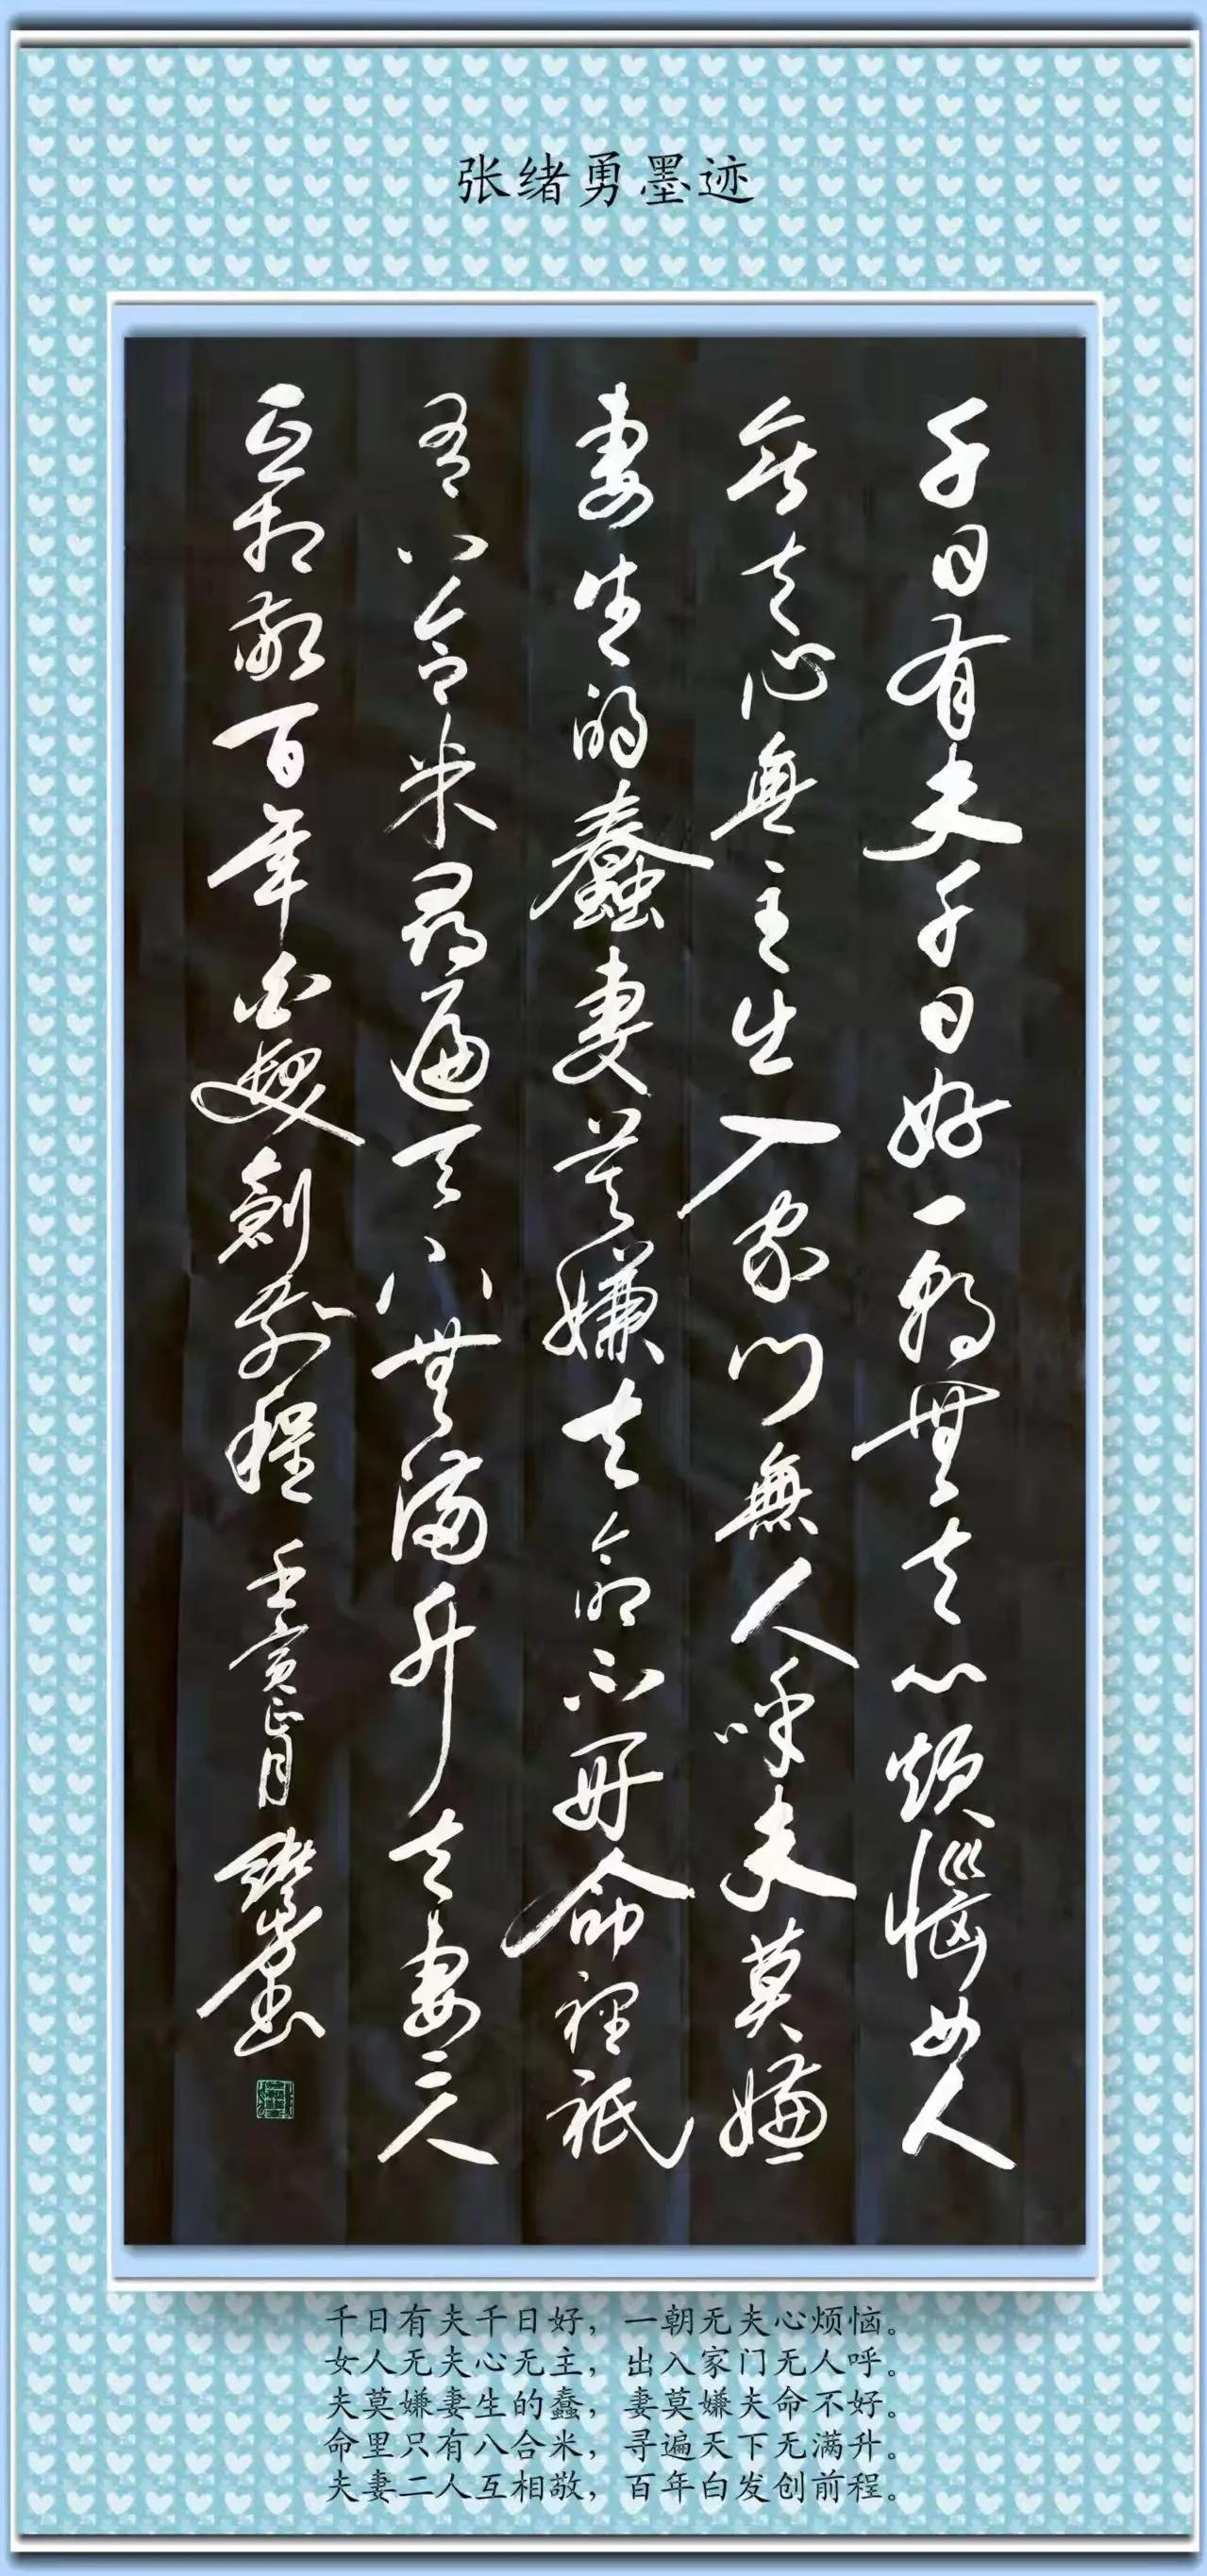 张绪勇墨迹
千日有夫千日好一朝無夫心煩惱女人
無夫心無主出入家門無人呼夫莫嫌
妻生的蠢妻莫嫌夫命不好命裡祇
有八合米尋遍天下無滿升夫妻二人
互相敬百年白髮創前程 壬寅正月 緒勇書
千日有夫千日好，一朝无夫心烦恼。
女人无夫心无主，出入家门无人呼。
夫莫嫌妻生的蠢，妻莫嫌夫命不好。
命里只有八合米，寻遍天下无满升。
夫妻二人互相敬，百年白发创前程。